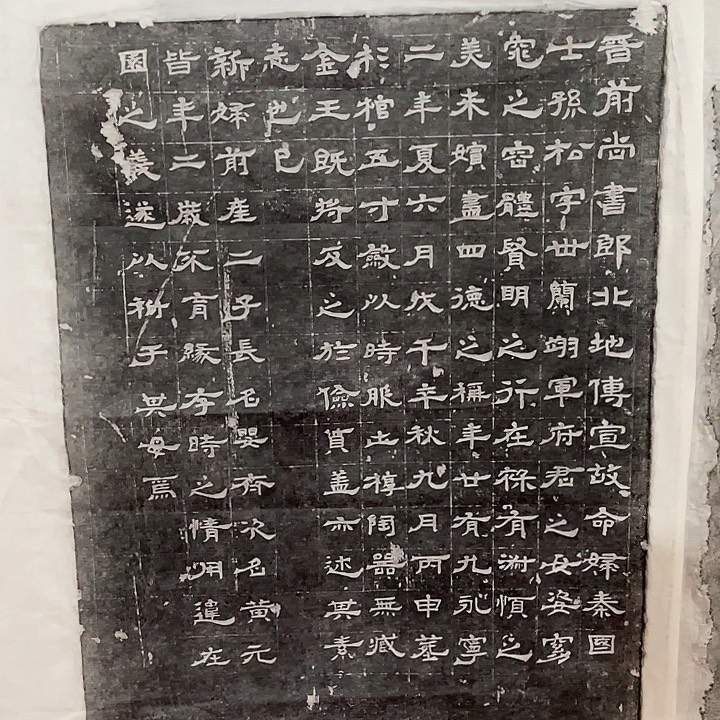 晉前尚書郎北地傅宣故命婦秦國
士孫松字世蘭翊軍府君之女姿窈
窕之容體賢明之行在有淑慎之
美來嬪盡四德之稱年廿有九永寧
二年夏六月戊午卒秋九月丙申葬
杉棺五寸斂以時服土槨陶器無臧
金玉既將反之於儉質蓋亦述其素
志也已
新婦前產二子長名嬰齊次名黃元
皆年二歲不育緣存時之情用違在
園之義遂以祔于其母焉